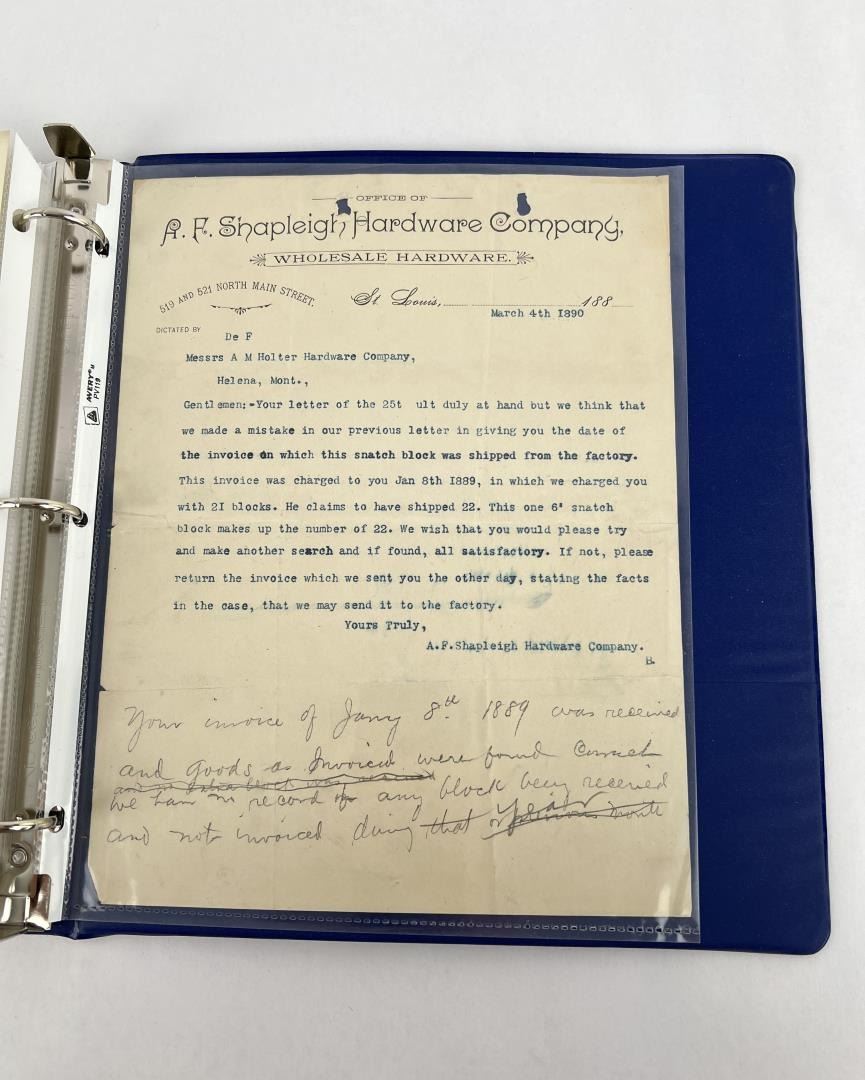 OFFICE OF
A. F. Shapleigh Hardware Company,
WHOLESALE HARDWARE.
519 AND 521 NORTH MAIN STREET.
St. Louis, 188
March 4th I890
DICTATED BY
De F
Messrs A M Holter Hardware Company,
Helena, Mont.,
Gentlemen:-Your letter of the 25t ult duly at hand but we think that
we made a mistake in our previous letter in giving you the date of
the invoice on which this snatch block was shipped from the factory.
This invoice was charged to you Jan 8th I889, in which we charged you
with 2I blocks. He claims to have shipped 22. This one 6" snatch
block makes up the number of 22. We wish that you would please try
and make another search and if found, all satisfactory. If not, please
return the invoice which we sent you the other day, stating the facts
in the case, that we may send it to the factory.
Yours Truly,
A.F.Shapleigh Hardware Company.
B.
Your invoice of Jany 8th 1889 was received
and goods as Invoiced were found Correct
and no Extra block was received
We have no record of any block being received
and not invoiced during that year
AVERY®
PV119